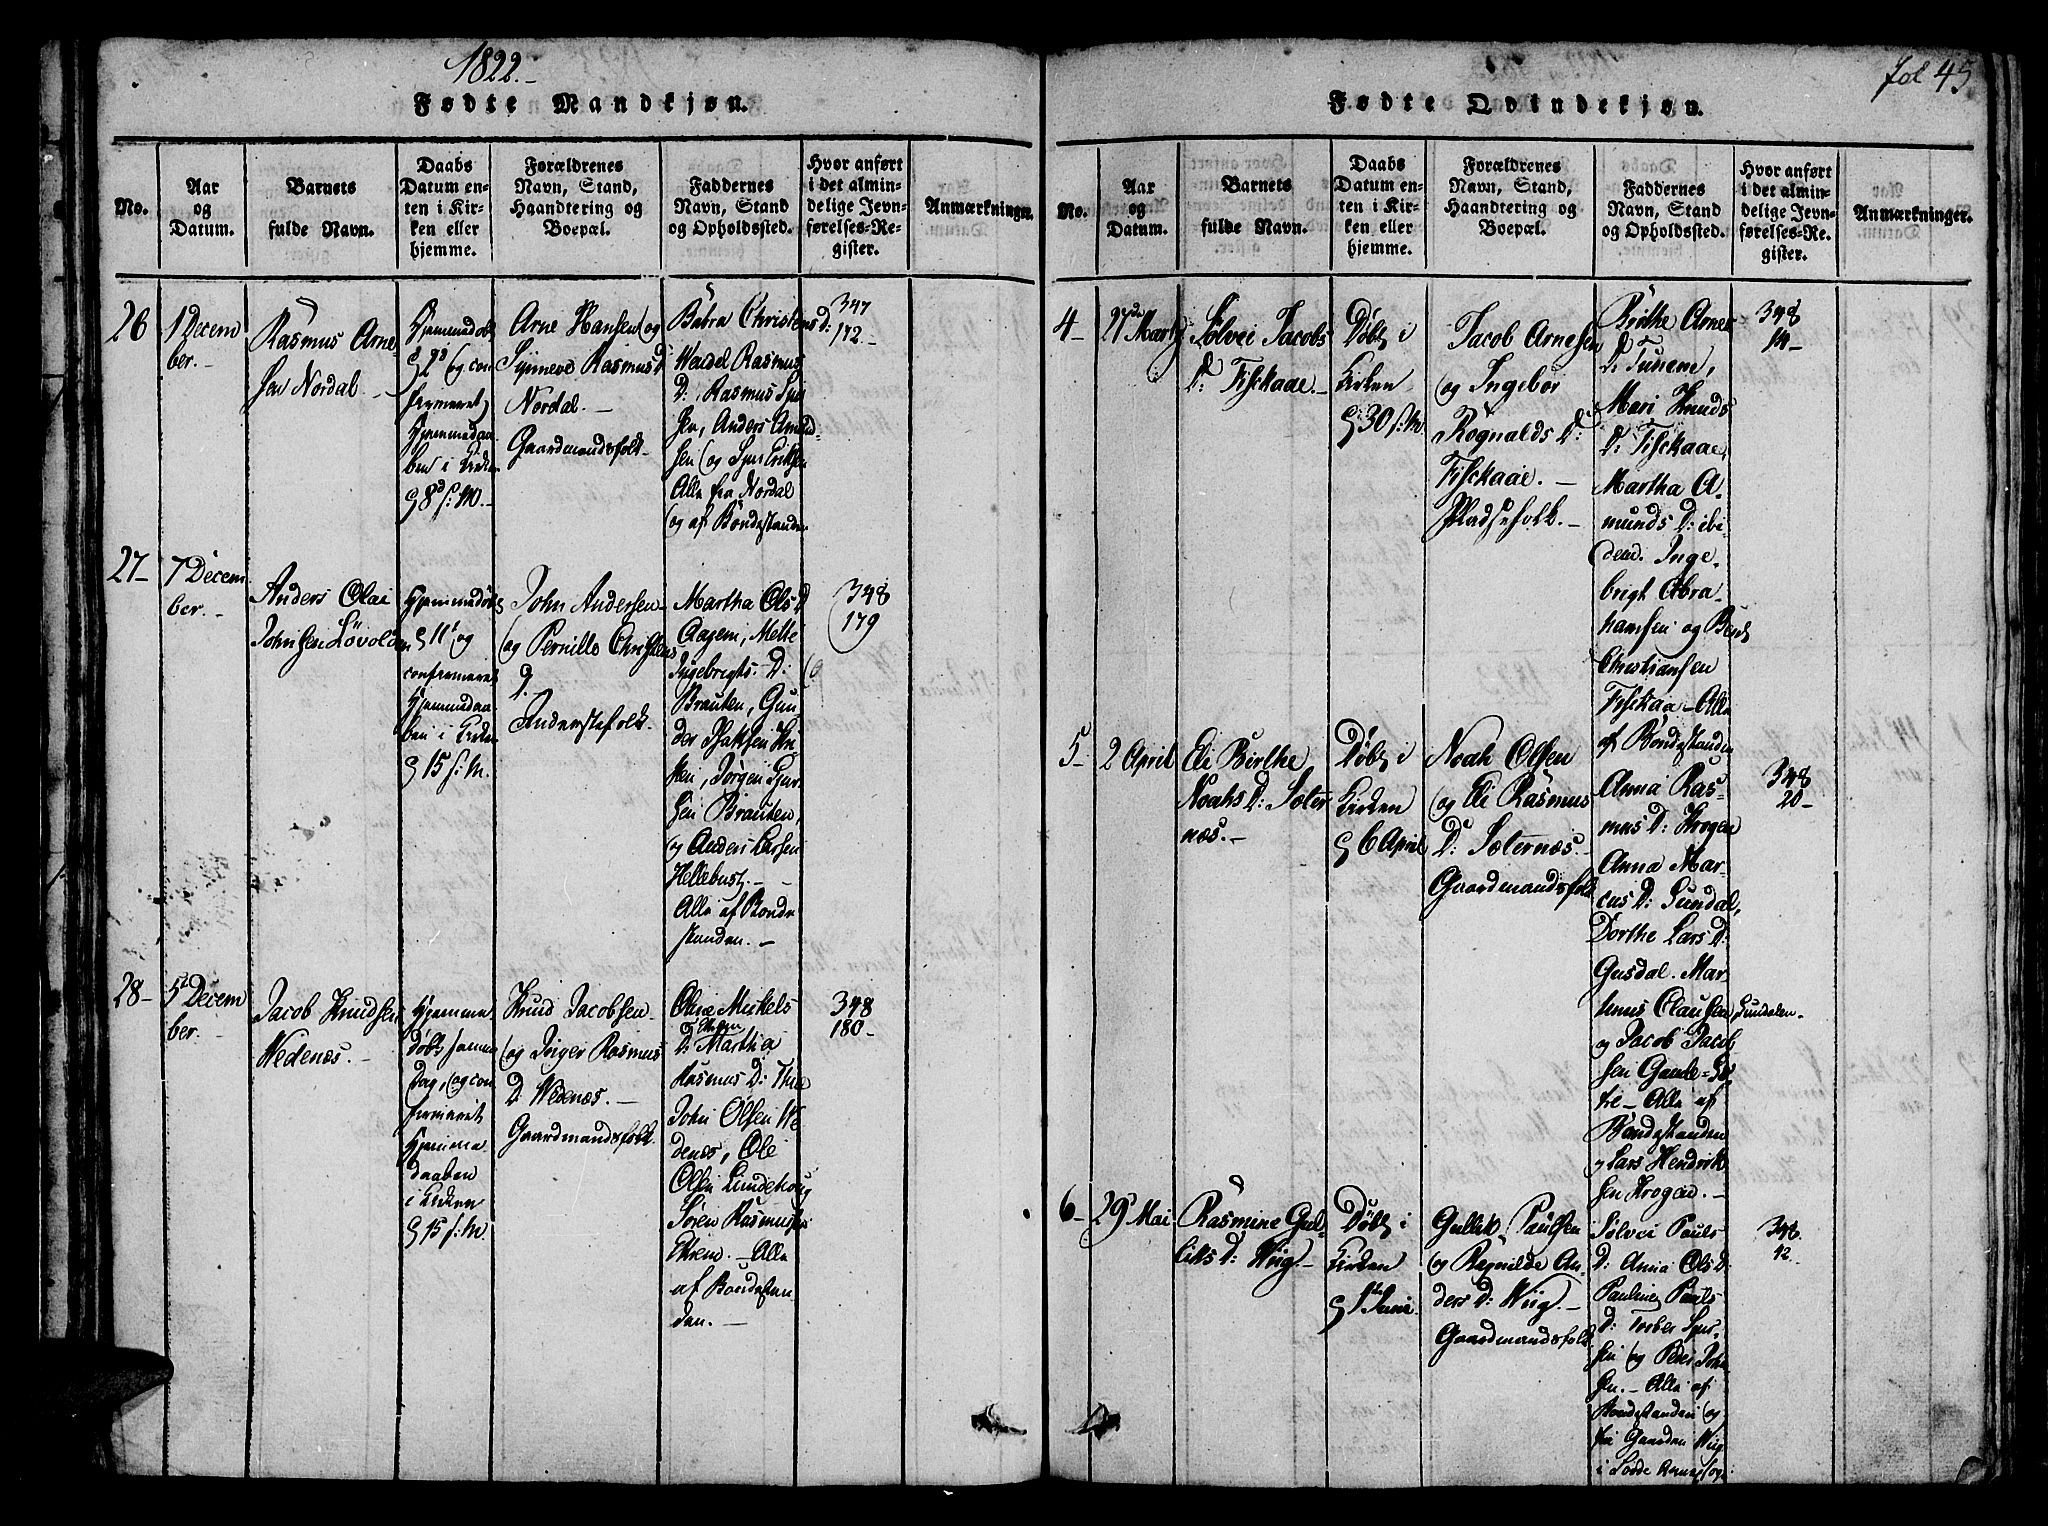 1822.-
Fødte Mandkjøn.
No.
Aar
og
Datum.
Barnets
fulde Navn.
Daabs
Datum en-
ten i Kir-
ken eller
hjemme.
Forældrenes
Navn, Stand,
Haandtering og
Boepæl.
Faddernes
Navn, Stand
og Opholdssted.
Hvor anført
i det almin-
delige Jevn-
førelses-Re-
gister.
Anmærkninger.
26
1 Decem
ber.-
Rasmus Arne-
sen Nordal.-
Hjemmedøbt
d 2d og con
firmeret
Hjemmedaa-
ben i Kirken
d 8d s: M.-
Arne Hansen og
Synneve Rasmus D
Nordal.-
Gaardmandsfolk.
Babra Christens D:
Wendel Rasmus
D: Rasmus Sjur
sen, Anders Amund-
sen og Sjur Eriksen
Alle fra Nordal
og af Bondestanden
347
172.-
27-
7 Decem
ber.-
Anders Olai
Johnsen Løvolden
Hjemmedøbt
d 11t og
confirmeret
Hjemmedaa
ben i Kirken
d 15 s: M.
John Andersen
og Pernille Christens
D.
Inderstefolk.
Martha Ols D
Aagem, Mette
Ingebrigts-D:
Brauten, Gun
der Isaksen
Jørgen Sjur-
sen Brauten,
og Anders Larsen
Hellebust.-
Alle af Bonde
standen.-
348
179
28-
5t Decem
ber.-
Jacob Knudsen
Wedenæs.-
Hjemme
døbt samme
Dag, og con
firmeret
Hjemme-
daaben
i Kirken
d 15 s: M.
Knud Jacobsen
og Inger Rasmus
D. Wedenæs.-
Gaardmandsfolk.
Oline Mickels
D: Ekrem Martha
Rasmus D:
John Olsen We
denæs, Ole
Olsen Lundehoug
Søren Rasmusen
Ekrem.-Alle
af Bondestan
den.-
348
180-
fol 45
Fødte Qvindekjøn.
No.
Aar
og
Datum.
Barnets
fulde Navn.
Daabs
Datum en-
ten i Kir-
ken eller
hjemme.
Forældrenes
Navn, Stand,
Haandtering og
Boepæl.
Faddernes
Navn, Stand
og Opholdssted.
Hvor anført
i det almin-
delige Jevn-
førelses-Re-
gister.
Anmærkninger.
4-
27de Martz
Sølvei Jacobs
D: Fisckaae.-
Døbt i
Kirken
d 30 s: M.
Jacob Arnesen
og Ingebor
Rognalds D:
Fisckaae.-
Pladsefolk.-
Brithe Arnes
D: Tunem,
Mari Knuds
D: Fisckaae,
Martha A-
munds D: ibi
dem. Inge-
brigt Abra-
hamsen og Bent
Christiansen
Fisckaa-Alle
af Bondestanden
348
14-
5-
2 April
Eli Birthe
Noahs D: Sæter
næs.-
Døbt i
Kirken
d 6 April
Noah Olsen
og Eli Rasmus
D: Sæternæs.
Gaardmandsfolk
Anna Ras-
mus D: Krogen
Anna Mar-
cus D: Sundal,
Dorthe Lars D:
Gusdal. Mar-
thinus Clausen Sundalen.
og Jacob Jacob
sen Gamle-Sæ
tre-Alle af
Bondestanden
og Lars Hendrik
sen Krogen.-
348
20-
6-
29 Mai
Rasmine Gul-
liks D: Wiig.-
Døbt i
Kirken
d 1ste Juni
Gullik Paulsen
og Ragnilde An-
ders D: Wiig.-
Gaardmandsfolk
Sølvei Pauls
D: Anna Ols D:
Pauline Pauls
D: Torber Sjur-
sen og Peder John
sen.-Alle af
Bondestanden og
fra Gaarden Wiig
348.
42.